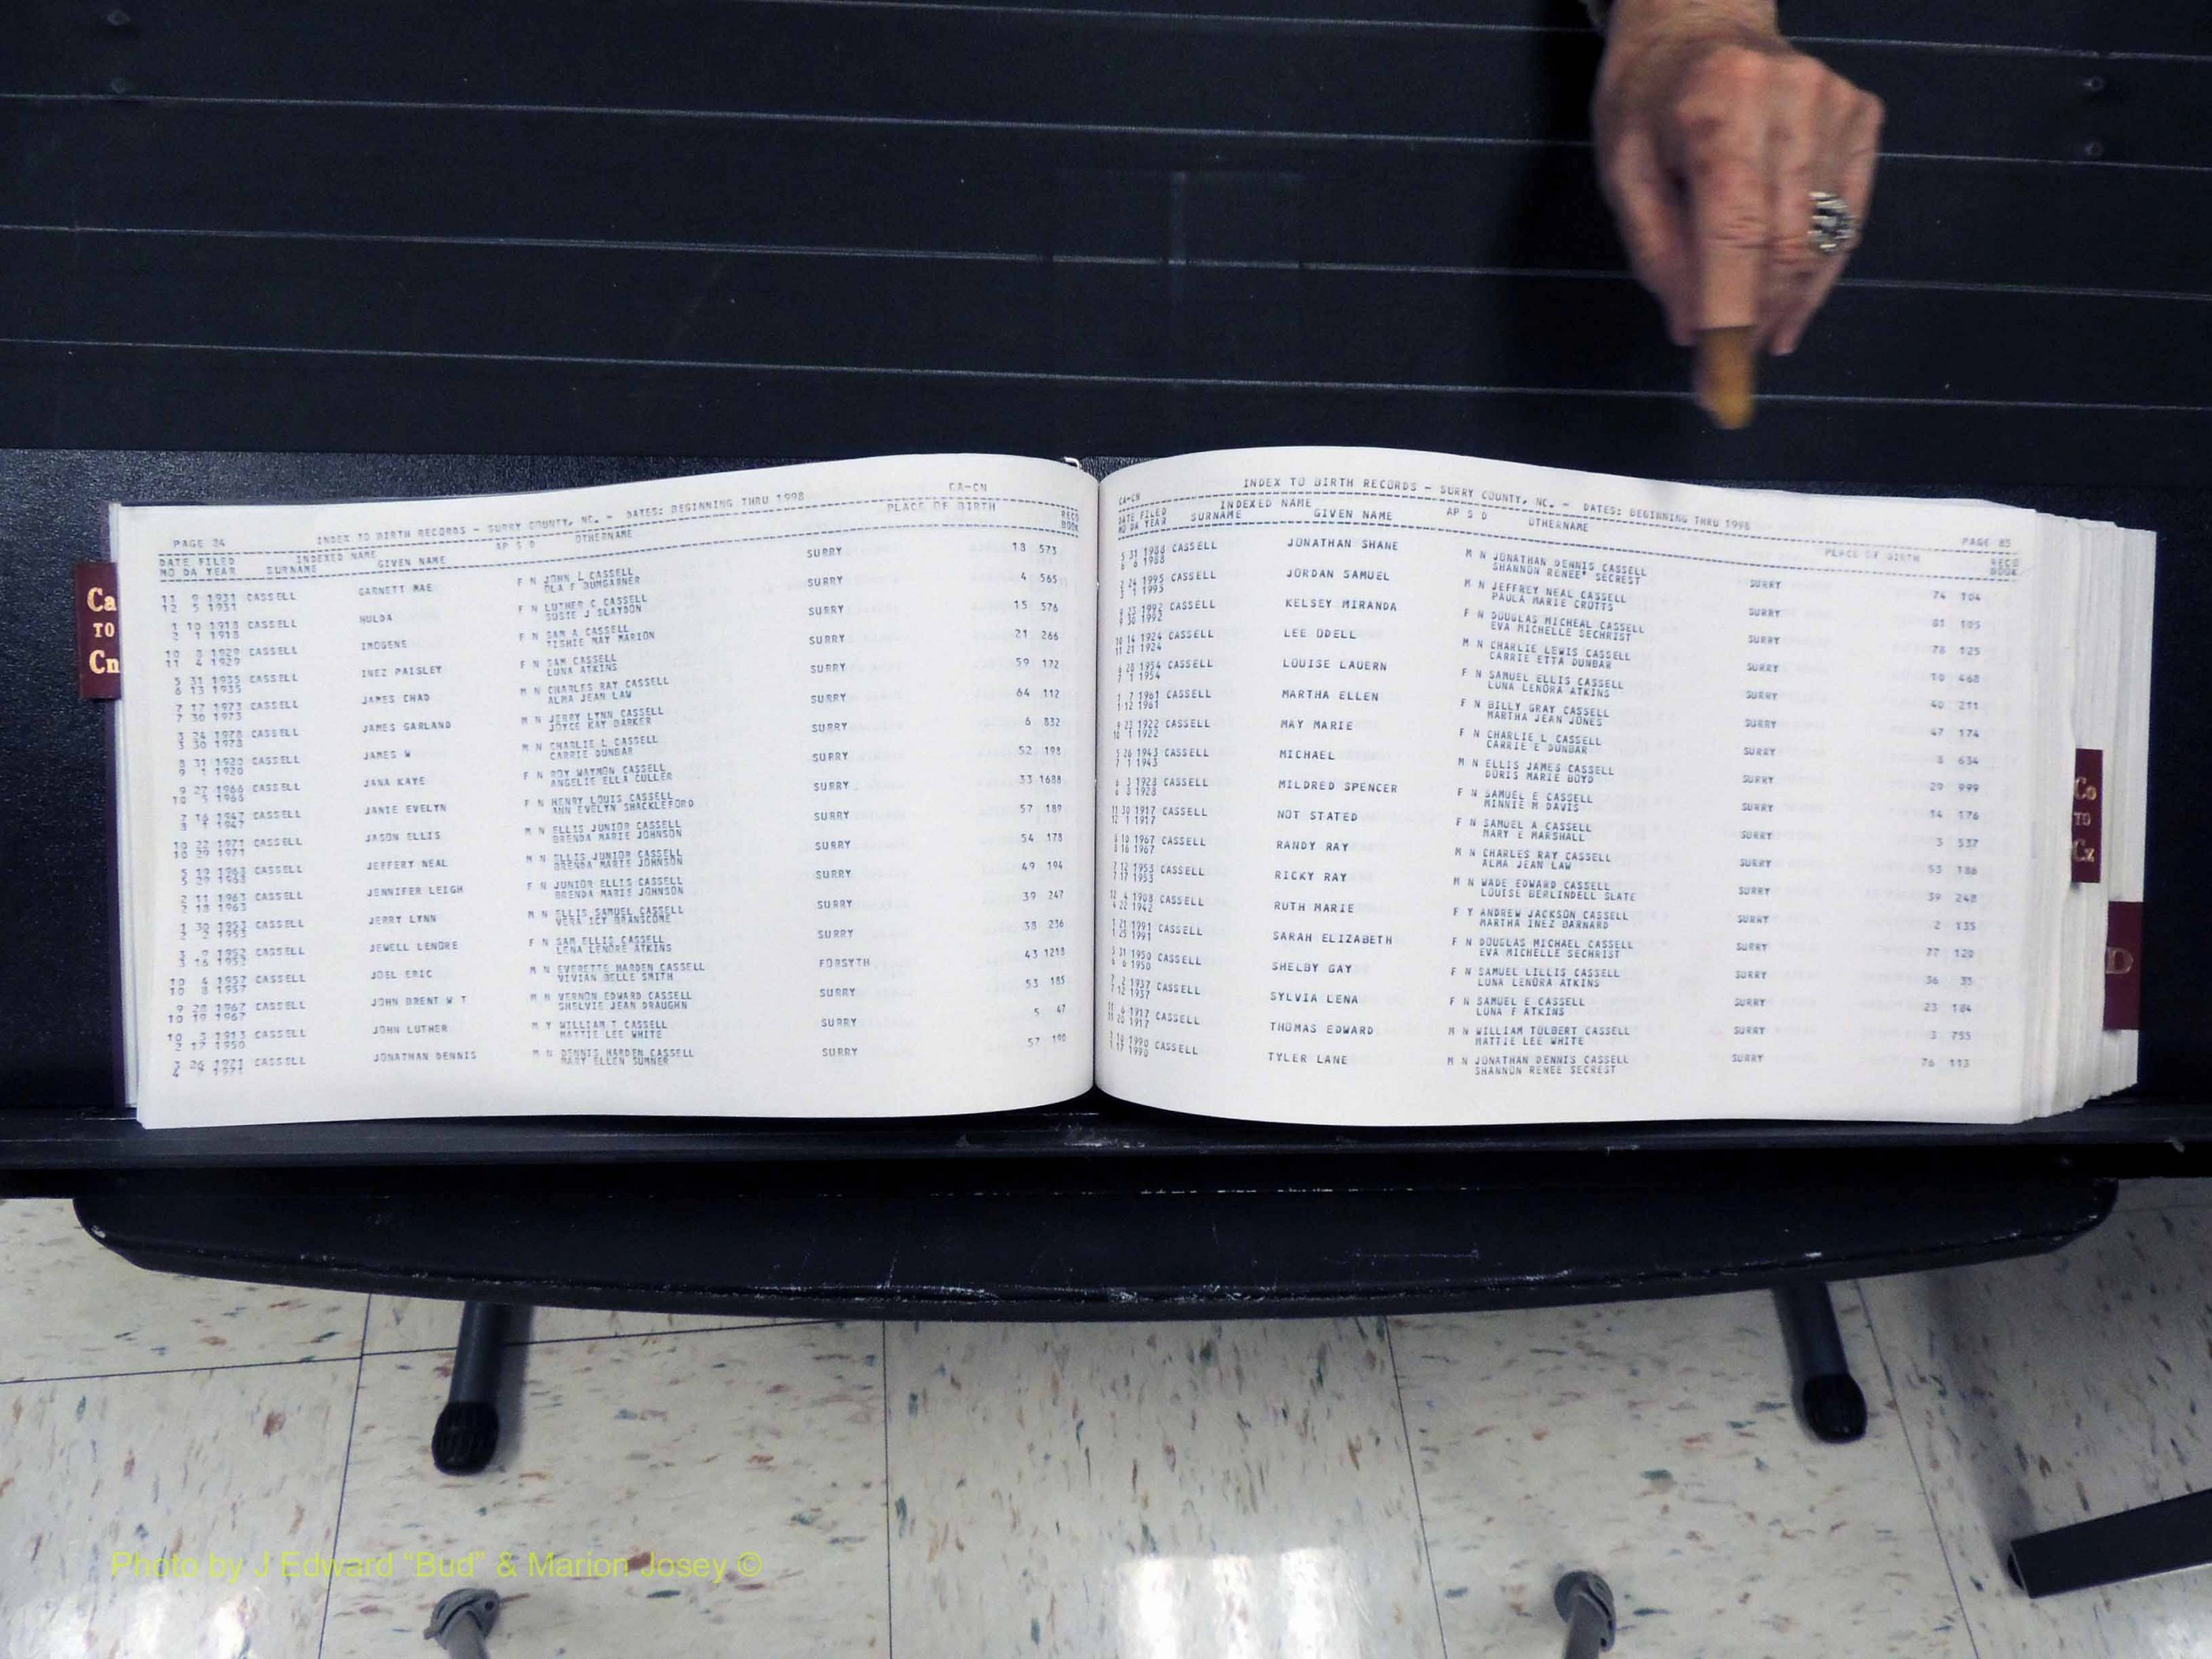 Ca
TO
Cn
PAGE 84 INDEX TO BIRTH RECORDS - SURRY COUNTY, NC. - DATES: BEGINNING THRU 1998 CA-CN
DATE FILED INDEXED NAME AP S D OTHERNAME PLACE OF BIRTH RECD
MO DA YEAR SURNAME GIVEN NAME BOOK
11 9 1931 CASSELL GARNETT MAE F N JOHN L CASSELL SURRY 18 573
12 5 1931 OLA F BUMGARNER
1 10 1918 CASSELL HULDA F N LUTHER C CASSELL SURRY 4 565
2 1 1918 SUSIE J SLAYDON
10 8 1929 CASSELL IMOGENE F N SAM A CASSELL SURRY 15 576
11 4 1929 TISHIE MAY MARION
5 31 1935 CASSELL INEZ PAISLEY F N SAM CASSELL SURRY 21 266
6 13 1935 LUNA ATKINS
7 17 1973 CASSELL JAMES CHAD M N CHARLES RAY CASSELL SURRY 59 172
7 30 1973 ALMA JEAN LAW
3 24 1978 CASSELL JAMES GARLAND M N JERRY LYNN CASSELL SURRY 64 112
3 30 1978 JOYCE KAY BARKER
8 31 1920 CASSELL JAMES W M N CHARLIE L CASSELL SURRY 6 832
9 1 1920 CARRIE DUNBAR
9 27 1966 CASSELL JANA KAYE F N ROY WAYMON CASSELL SURRY 52 198
10 5 1966 ANGELIE ELLA CULLER
7 16 1947 CASSELL JANIE EVELYN F N HENRY LOUIS CASSELL SURRY 33 1688
8 1 1947 ANN EVELYN SHACKLEFORD
10 22 1971 CASSELL JASON ELLIS M N ELLIS JUNIOR CASSELL SURRY 57 189
10 29 1971 BRENDA MARIE JOHNSON
5 19 1968 CASSELL JEFFERT NEAL M N ELLIS JUNIOR CASSELL SURRY 54 178
5 29 1968 BRENDA MARIE JOHNSON
2 11 1963 CASSELL JENNIFER LEIGH F N JUNIOR ELLIS CASSELL SURRY 49 194
2 18 1963 BRENDA MARIE JOHNSON
1 30 1953 CASSELL JERRY LYNN M N ELLIS SAMUEL CASSELL SURRY 39 247
2 2 1953 VERA ICY BRANSCOME
3 9 1952 CASSELL JEWELL LENORE F N SAM ELLIS CASSELL SURRY 38 236
3 16 1952 LENA LENORE ATKINS
10 4 1957 CASSELL JOEL ERIC M N EVERETTE HARDEN CASSELL FORSYTH 43 1218
10 8 1957 VIVIAN BELLE SMITH
9 28 1967 CASSELL JOHN BRENT W T M N VERNON EDWARD CASSELL SURRY 53 185
10 19 1967 SHELVIE JEAN DRAUGHN
10 3 1913 CASSELL JOHN LUTHER M Y WILLIAM T CASSELL SURRY 5 47
2 17 1950 MATTIE LEE WHITE
3 26 1971 CASSELL JONATHAN DENNIS M N DENNIS HARDEN CASSELL SURRY 57 190
4 1971 MARY ELLEN SUMNER
CA-CN INDEX TO BIRTH RECORDS - SURRY COUNTY, NC. - DATES: BEGINNING THRU 1998 PAGE 85
DATE FILED INDEXED NAME AP S D OTHERNAME PLACE OF BIRTH RECD
MO DA YEAR SURNAME GIVEN NAME BOOK
5 31 1988 CASSELL JONATHAN SHANE M N JONATHAN DENNIS CASSELL SURRY 74 104
6 6 1988 SHANNON RENEE' SECREST
2 24 1995 CASSELL JORDAN SAMUEL M N JEFFREY NEAL CASSELL SURRY 81 105
3 1 1995 PAULA MARIE CROTTS
9 23 1992 CASSELL KELSEY MIRANDA F N DOUGLAS MICHEAL CASSELL SURRY 78 125
9 30 1992 EVA MICHELLE SECHRIST
10 14 1924 CASSELL LEE ODELL M N CHARLIE LEWIS CASSELL SURRY 10 468
11 21 1924 CARRIE ETTA DUNBAR
6 28 1954 CASSELL LOUISE LAUERN F N SAMUEL ELLIS CASSELL SURRY 40 211
7 1 1954 LUNA LENORA ATKINS
1 7 1961 CASSELL MARTHA ELLEN F N BILLY GRAY CASSELL SURRY 47 174
1 12 1961 MARTHA JEAN JONES
9 23 1922 CASSELL MAY MARIE F N CHARLIE L CASSELL SURRY 8 634
10 1 1922 CARRIE E DUNBAR
5 26 1943 CASSELL MICHAEL M N ELLIS JAMES CASSELL SURRY 29 999
7 1 1943 DORIS MARIE BOYD
6 3 1928 CASSELL MILDRED SPENCER F N SAMUEL E CASSELL SURRY 14 176
6 8 1928 MINNIE M DAVIS
11 30 1917 CASSELL NOT STATED F N SAMUEL A CASSELL SURRY 3 537
12 1 1917 MARY E MARSHALL
8 10 1967 CASSELL RANDY RAY M N CHARLES RAY CASSELL SURRY 53 186
8 16 1967 ALMA JEAN LAW
7 12 1953 CASSELL RICKY RAY M N WADE EDWARD CASSELL SURRY 39 248
7 17 1953 LOUISE BERLINDELL SLATE
12 4 1908 CASSELL RUTH MARIE F Y ANDREW JACKSON CASSELL SURRY 2 135
4 22 1942 MARTHA INEZ BARNARD
1 21 1991 CASSELL SARAH ELIZABETH F N DOUGLAS MICHAEL CASSELL SURRY 77 120
1 25 1991 EVA MICHELLE SECHRIST
5 31 1950 CASSELL SHELBY GAY F N SAMUEL LILLIS CASSELL SURRY 36 35
6 6 1950 LUNA LENORA ATKINS
7 2 1937 CASSELL SYLVIA LENA F N SAMUEL E CASSELL SURRY 23 184
7 12 1937 LUNA F ATKINS
11 6 1917 CASSELL THOMAS EDWARD M N WILLIAM TOLBERT CASSELL SURRY 3 755
11 20 1917 MATTIE LEE WHITE
1 1990 CASSELL TYLER LANE M N JONATHAN DENNIS CASSELL SURRY 76 113
1 17 1990 SHANNON RENEE SECREST
Co
TO
Cz
D
Photo by J Edward “Bud” & Marion Josey ©